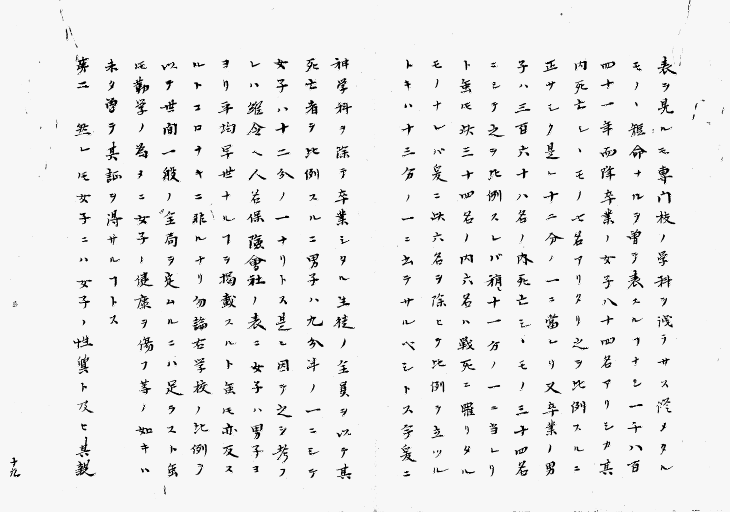 表ヲ見ルモ専門校ノ学科ヲ残ラサス修メタル
モノヽ短命ナルヲ曽テ表スルヿナシ一千八百
四十一年而降卒業ノ女子八十四名アリシカ其
内死亡シヽモノ七名アリタリ之ヲ比例スルニ
正サシク是レ十二分ノ一ニ當レリ又卒業ノ男
子ハ三百六十八名ノ内死亡シヽモノ三十四名
ニシテ之ヲ比例スレバ稍十一分ノ一ニ当レリ
ト虽モ此三十四名ノ内六名ハ戦死ニ罹リタル
モノナレバ爰ニ此六名ヲ除ヒテ比例ヲ立ツル
トキハ十三分ノ一ニ出テサルベシトス今爰ニ
神学科ヲ除テ卒業シタル生徒ノ全員ヲ以テ其
死亡者ヲ比例スルニ男子ハ九分半ノ一ニシテ
女子ハ十二分ノ一ナリトス是ニ因テ之ヲ考フ
レハ縦令ヘ人名保険會社ノ表ニ女子ハ男子ヨ
ヨリ平均早世ナルヿヲ掲載スルト虽モ亦反ス
ルトコロナキニ非ルナリ勿論右学校ノ比例ヲ
以テ世間一般ノ全局ヲ定ムルニハ足ラスト虽
モ勤学ノ為タニ女子ノ健康ヲ傷フ等ノ如キハ
未タ曽テ其証ヲ得サルヿトス
第二 然レモ女子ニハ女子ノ性質ト及ヒ其親
十九